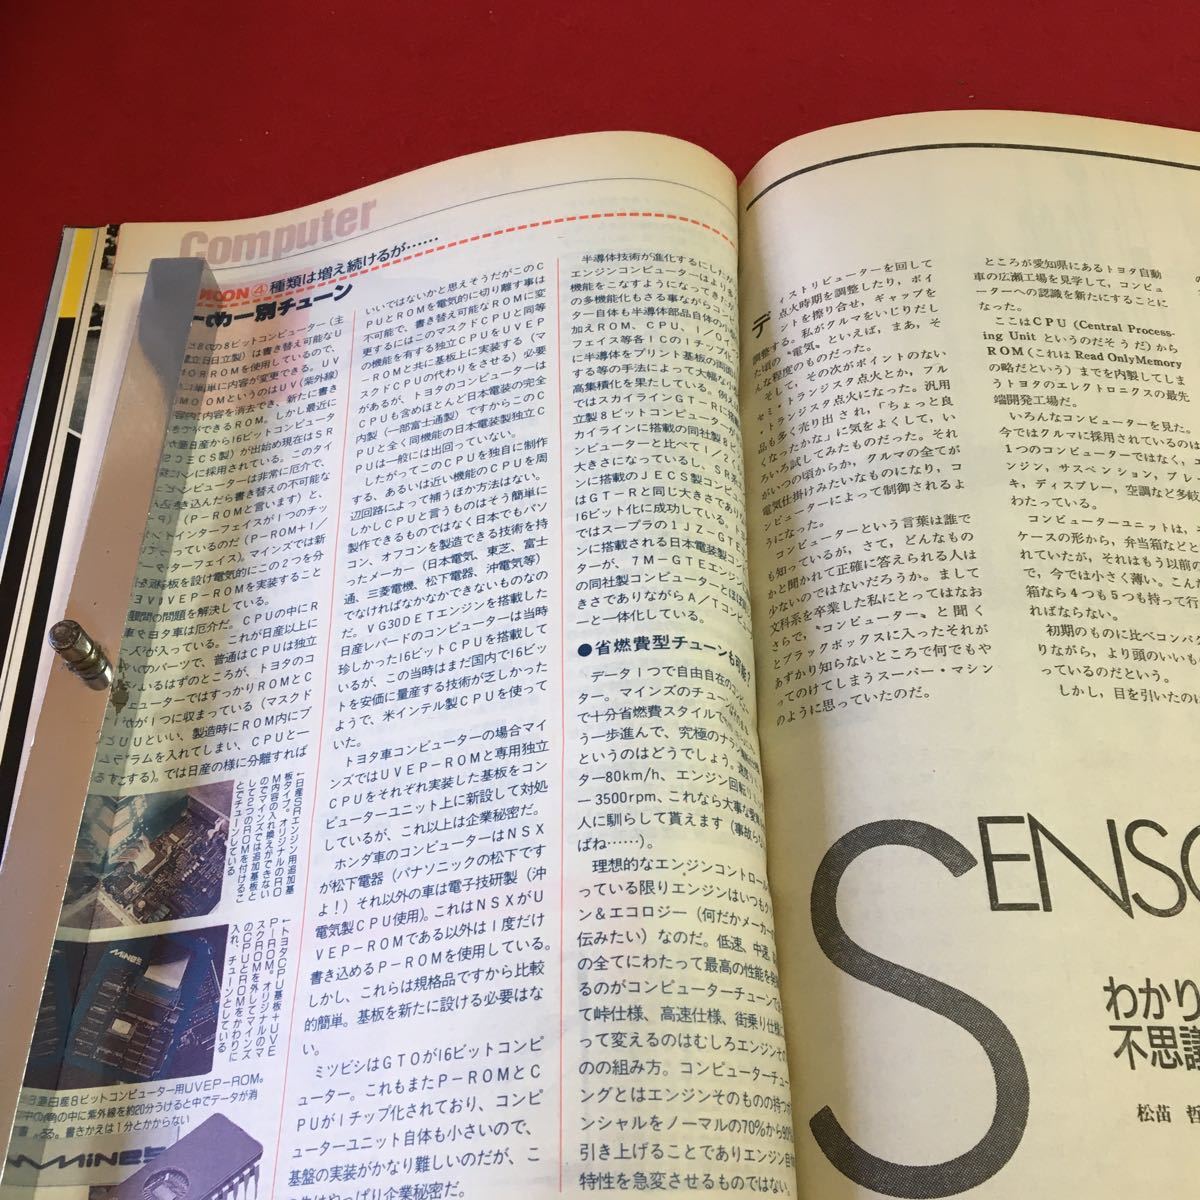 Computer
④種類は増え続けるが……
別チューン
の8ビットコンピューター（主
日立製）は書き換え可能なU
ROMを使用しているので、
簡単に内容が変更できる。
ROMというのはUV（紫外線）
内容を消去でき、新たに書き
ができるROM。しかし最近に
日産から16ビットコンピュータ
ECS製）が出始め現在はSR
に採用されている。このタイ
コンピューターは非常に厄介で、
き込んだら書き替えの不可能な
（P-ROMと言います）と、
インターフェイスが1つのチッ
っているのだ（P-ROM＋I／
ターフェイス）。マインズでは新
板を設け電気的にこの2つを分
VEP-ROMを実装すること
問題を解決している。
ヨタ車は厄介だ。CPUの中にR
が入っている。これが日産以上に
のパーツで、普通はCPUは独立
いるはずのところが、トヨタのコ
ューターではすっかりROMとC
が1つに収まっている（マスクド
Uといい、製造時にROM内にプ
ラムを入れてしまい、CPUと一
する）。では日産の様に分離すれば
←日産SRエンジン用追加基
板タイプ。オリジナルのRO
M内容の入れ換えができない
のでマインズでは追加基板と
して2つのROMを付けるこ
とでチューンしている
←トヨタCPU基板＋UVE
P-ROM。オリジナルのマ
スクROMを外してマインズ
のCPUとROMをかわりに
入れ、チューンとしている
日産8ビットコンピューター用UVEP-ROM。
の中に紫外線を約20分うけると中でデータが消
る。書きかえは1分とかからない
MINE'S
いいではないかと思えそうだがこのC
PUとROMを電気的に切り離す事は
不可能で、書き替え可能なROMに変
更するにはこのマスクドCPUと同等
の機能を有する独立CPUをUVEP
-ROMと共に基板上に実装する（マ
スクドCPUの代わりをさせる）必要
があるが、トヨタのコンピューターは
CPUも含めほとんど日本電装の完全
内製（一部富士通製）ですからこのC
PUと全く同機能の日本電装製独立C
PUは一般には出回っていない。
したがってこのCPUを独自に制作
する、あるいは近い機能のCPUを周
辺回路によって補うほか方法はない。
しかしCPUと言うものはそう簡単に
製作できるものではなく日本でもパソ
コン、オフコンを製造できる技術を持
ったメーカー（日本電気、東芝、富士
通、三菱電機、松下電器、沖電気等）
でなければなかなかできないものなの
だ。VG30DETエンジンを搭載した
日産レパードのコンピューターは当時
珍しかった16ビットCPUを搭載して
いるが、この当時はまだ国内で16ビッ
トを安価に量産する技術が乏しかった
ようで、米インテル製CPUを使って
いた。
トヨタ車コンピューターの場合マイ
ンズではUVEP-ROMと専用独立
CPUをそれぞれ実装した基板をコン
ピューターユニット上に新設して対処
しているが、これ以上は企業秘密だ。
ホンダ車のコンピューターはNSX
が松下電器（パナソニックの松下です
よ！）それ以外の車は電子技研製（沖
電気製CPU使用）。これはNSXがU
VEP-ROMである以外は1度だけ
書き込めるP-ROMを使用している。
しかし、これらは規格品ですから比較
的簡単。基板を新たに設ける必要はな
い。
ミツビシはGTOが16ビットコンピ
ューター。これもまたP-ROMとC
PUが1チップ化されており、コンピ
ューターユニット自体も小さいので、
基盤の実装がかなり難しいのだが、こ
やっぱり企業秘密だ。
半導体技術が進化するにしたが
エンジンコンピューターはより多
機能をこなすようになってきた。
の多機能化もさる事ながらコンピ
ーター自体も半導体部品自体の小
加えROM、CPU、I／Oイ
フェイス等各ICの1チップ化
に半導体をプリント基板の両面
する等の手法によって大幅な小
高集積化を果たしている。例え
ではスカイラインGT-Rに搭
立製8ビットコンピューターが
カイラインに搭載の同社製8ビ
ピューターと比べて1／2
大きさになっているし、SR系
ンに搭載のJECS製コンピ
はGT-Rと同じ大きさであり
16ビット化に成功している。
ではスープラの1JZ-GTE
ンに搭載される日本電装製コン
ターが、7M-GTEエンジン
の同社製コンピューターとほぼ同
きさでありながらA／Tコンピ
ーと一体化している。
●省燃費型チューンも可能？
データ1つで自由自在のコンピュー
ター。マインズのチュー
で十分省燃費スタイルで
う一歩進んで、究極のナラシ
というのはどうでしょう。
ター80km/h、エンジン回転リ
ー3500rpm、これなら大事な愛車
人に馴らして貰えます（事故ら
ばね……）。
理想的なエンジンコントロール
っている限りエンジンはいつもクリ
ン＆エコロジー（何だかメーカーの
伝みたい）なのだ。低速、中速、高
の全てにわたって最高の性能を
るのがコンピューターチューンで
て峠仕様、高速仕様、街乗り仕様
って変えるのはむしろエンジンその
のの組み方。コンピューターチュー
ングとはエンジンそのものの持つポ
ンシャルをノーマルの70％から90％
引き上げることでありエンジン自
特性を急変させるものではない。
ディストリビューターを回して
点火時期を調整したり、ポイ
ントを擦り合せ、ギャップを
調整する。私がクルマをいじりだし
た頃の〝電気〟といえば、まあ、そ
んな程度のものだった。
そして、その次がポイントのない
セミ・トランジスタ点火とか、フル
・トランジスタ点火になった。汎用
品も多く売り出され、「ちょっと良
くなったかな」に気をよくして、い
ろいろ試してみたものだった。それ
がいつの頃からか、クルマの全てが
電気仕掛けみたいなものになり、コ
ンピューターによって制御されるよ
うになった。
コンピューターという言葉は誰で
も知っているが、さて、どんなもの
かと聞かれて正確に答えられる人は
少ないのではないだろうか。まして
文科系を卒業した私にとってはなお
さらで、〝コンピューター〟と聞く
とブラックボックスに入ったそれが
あずかり知らないところで何でもや
ってのけてしまうスーパー・マシン
のように思っていたのだ。
ところが愛知県にあるトヨタ自動
車の広瀬工場を見学して、コンピュ
ーターへの認識を新たにすることに
なった。
ここはCPU (Central Process-
ing Unit というのだそうだ) から
ROM (これは Read OnlyMemory
の略だという) までを内製してしま
うトヨタのエレクトロニクスの最先
端開発工場だ。
いろんなコンピューターを見た。
今ではクルマに採用されているのは
1つのコンピューターではなく、エ
ンジン、サスペンション、ブレー
キ、ディスプレー、空調など多岐
わたっている。
コンピューターユニットは、
ケースの形から、弁当箱などと
れていたが、それはもう以前の
で、今では小さく薄い。こん
箱なら4つも5つも持って行
ればならない。
初期のものに比べコンパ
りながら、より頭のいいも
っているのだという。
しかし、目を引いたのは
SENSO
わかり
不思議
松苗 哲